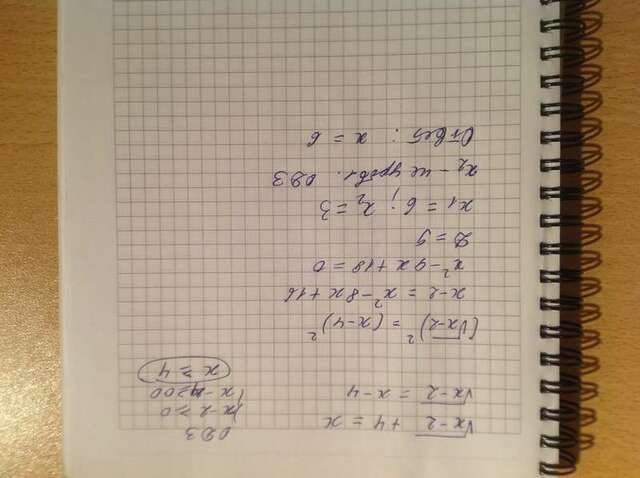 √x-2 + 4 = x
√x-2 = x-4
ОДЗ
x-2 ≥ 0
x-4 ≥ 0
x ≥ 4
(√x-2)² = (x-4)²
x-2 = x²-8x+16
x²-9x+18=0
Д=9
x₁ = 6; x₂ = 3
x₂ - не удовл. ОДЗ
Ответ: x = 6